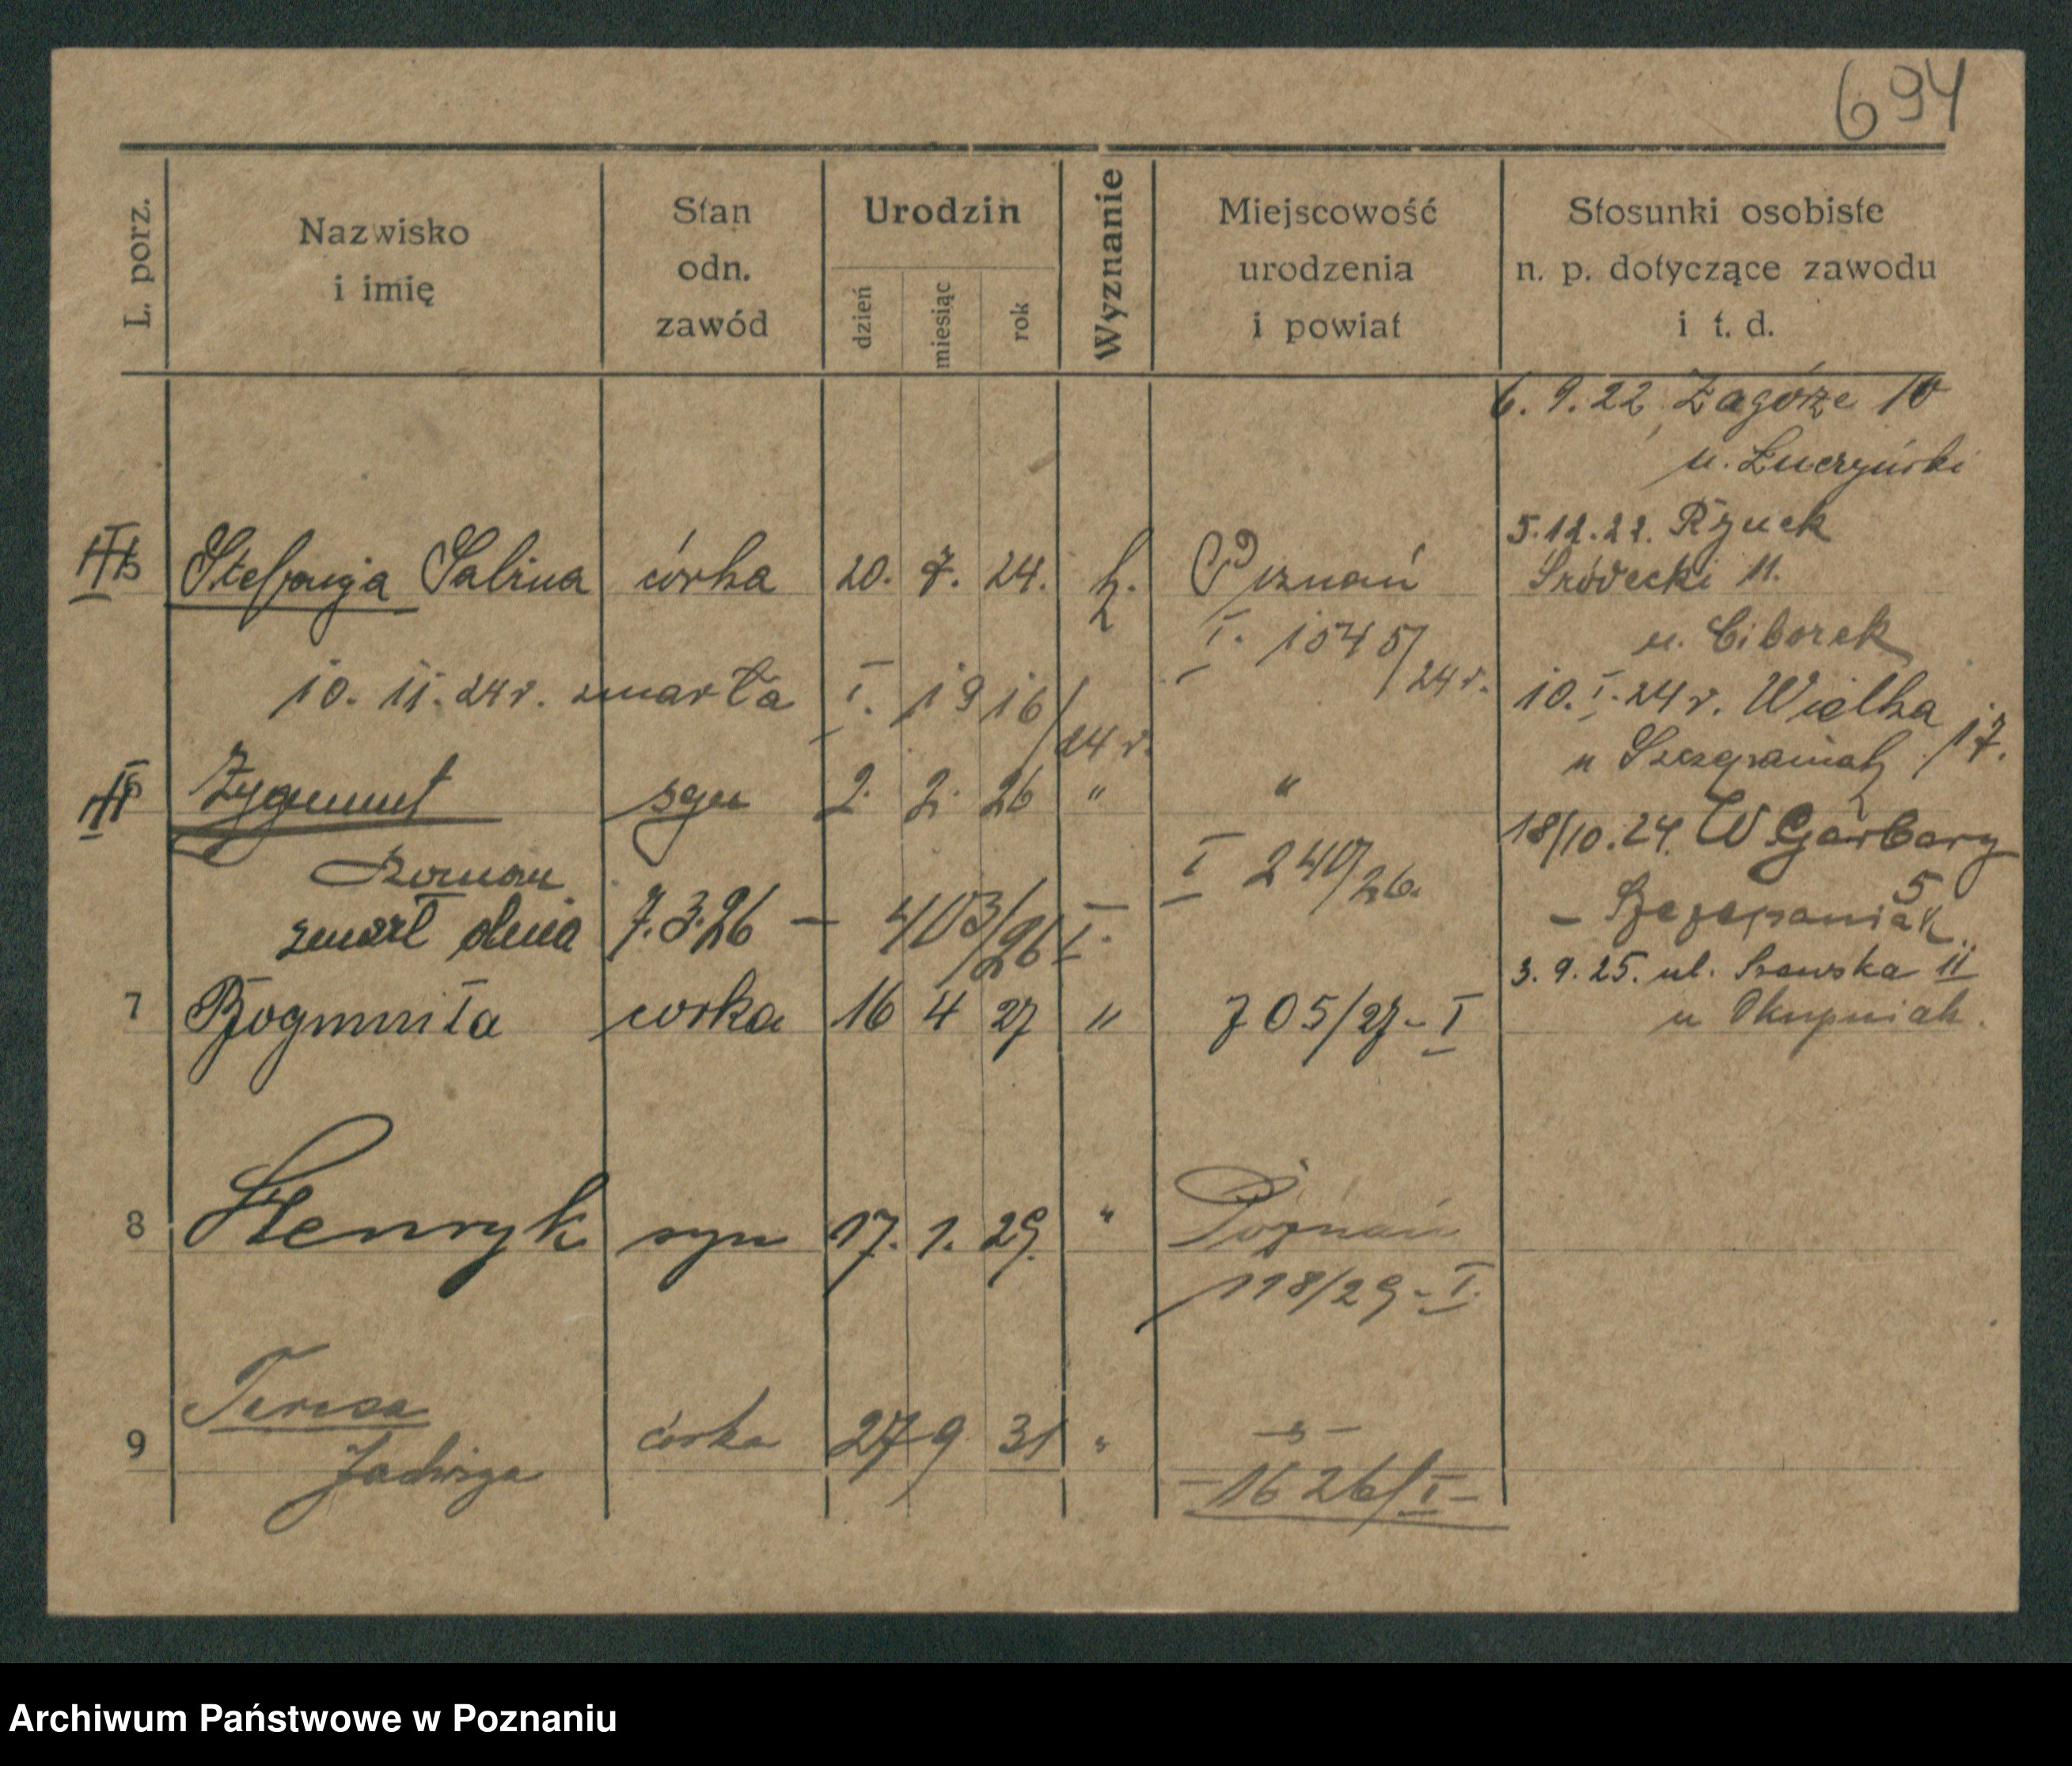 694
L. porz.
Nazwisko
i imię
Stan
odn.
zawód
Urodzin
dzień
miesiąc
rok
Wyznanie
Miejscowość
urodzenia
i powiat
Stosunki osobiste
n. p. dotyczące zawodu
i t. d.
6. 9. 22 Zagórze 10
u. Łuczyński
5.12.22. Rynek
Śródecki 11.
u. Ciborek
10. I. 24 r. Wielka 17.
u Szczepaniak
18/10.24. W Garbary 5
– Szczepaniak
3. 9. 25. ul.
u Skupniak.
Stefanja Sabina córka 20. 7. 24. k. Poznań
I. 1545/24 r.
10. 11. 24 r. zmarła I. 1916/24 r.
Zygmunt syn 2. 2. 26 " "
Roman
I 240/26.
zmarł dnia 7.3.26 – 403/26 I.
7 Bogumiła córka 16 4 27 " 705/27 - I
8 Henryk syn 17. 1. 29. " Poznań
118/29 - I.
9 Teresa
Jadwiga córka 27 9 31 " – " –
– 1626/I –
Archiwum Państwowe w Poznaniu